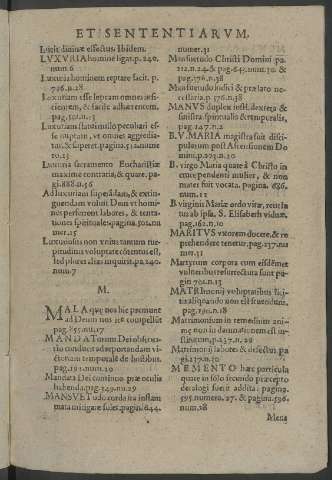 ET SENTENTIARVM.
Lucis diuinæ effectus. Ibidem.
LVXVRIA homine ligat. p. 240.
num. 6
Luxuria hominem reptare facit. p.
796. n. 28
Luxuriam esse lepram omnes inficientem,
& facile adhærentem.
pag. 50. n. 13
Luxuriam
se ruptam, vt omnes aggrediatur,
& superet. pagin.
to. 13
Luxuria sacramento Eucharistiæ
maxime contraria, & quare. pagi.
888. n. 56
Ad luxuriam superādam, & extinguendam
voluit Deus vt homines
perferrent labores, & tentationes
spirituales. pagina. 502. numer.
15
Luxuriosus non vult tantum turpitudinis
voluptate cōtentus est,
sed plures alias inquirit. pa. 240.
num. 7
M.
MALA que nos hic premunt
ad Deum nos ire compellūt
pag. 855. nu. 17
MANDATorum Dei obseruatio
conducit ad reportandam victoriam
temporalē de hostibus.
pag. 191. num. 20
Mandata Dei continuo præ oculis
habenda. pag. 349. nu. 29
MANSVETudo cordis ira inflammata
mitigare solet. pagin. 644.
numer. 31
Mansuetudo Christi Domini. pa.
212. n. 24. & pag. 645. num. 30. &
pag. 176. n. 38
Mansuetudo iudici & prælato necessaria.
p. 176. n. 38
MANVS duplex est. dextera &
sinistra, spiritualis & temporalis,
pag. 247. n. 2
B. V. MARIA magistra fuit discipulorum
post Ascensionem Domini.
p. 223. n. 30
B. virgo Maria quare à Christo in
cruce pendenti mulier, & non
mater fuit vocata. pagina. 686.
num. 12
B. virginis Mariæ ordo vitæ, reuelatus
ab ipsa. S. Elisabeth viduæ.
pag. 162. n. 10
MARITVS vxorem docere, & reprehendere
tenetur. pag. 237. nu
mer. 31
Martyrum corpora cum eisdémet
vulneribus resurrectura sunt pagin.
702. n. 13
MATRImonij voluptatibus licitis
aliquando non est fruendum.
pag. 190. n. 18
Matrimonium in remedium animæ
non in damnationem est institutum.
p. 237. n. 21. &
Matrimonij labores & defectus. pa
gi. 237. n. 30
MEMENTO hæc particula
quare in solo secundo præcepto
decalogi fuerit addita. pagina.
595. numero. 27. & pagina. 596.
num. 28
Mens